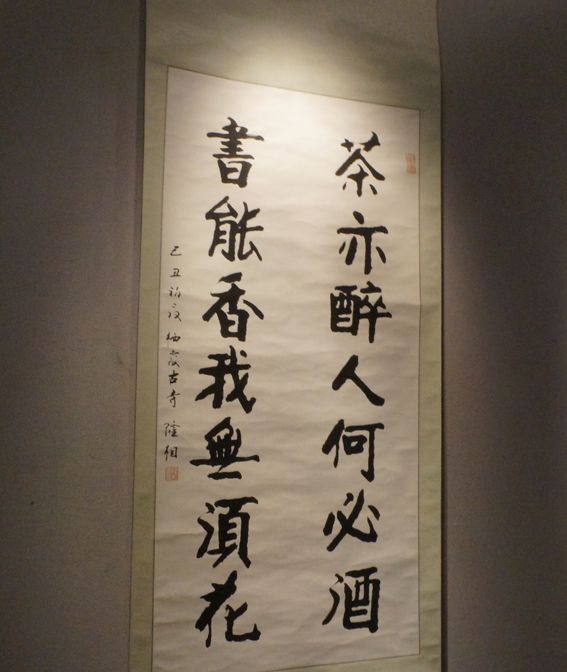 茶亦醉人何必酒
書能香我無須花
己丑初夏栖霞古寺隆相